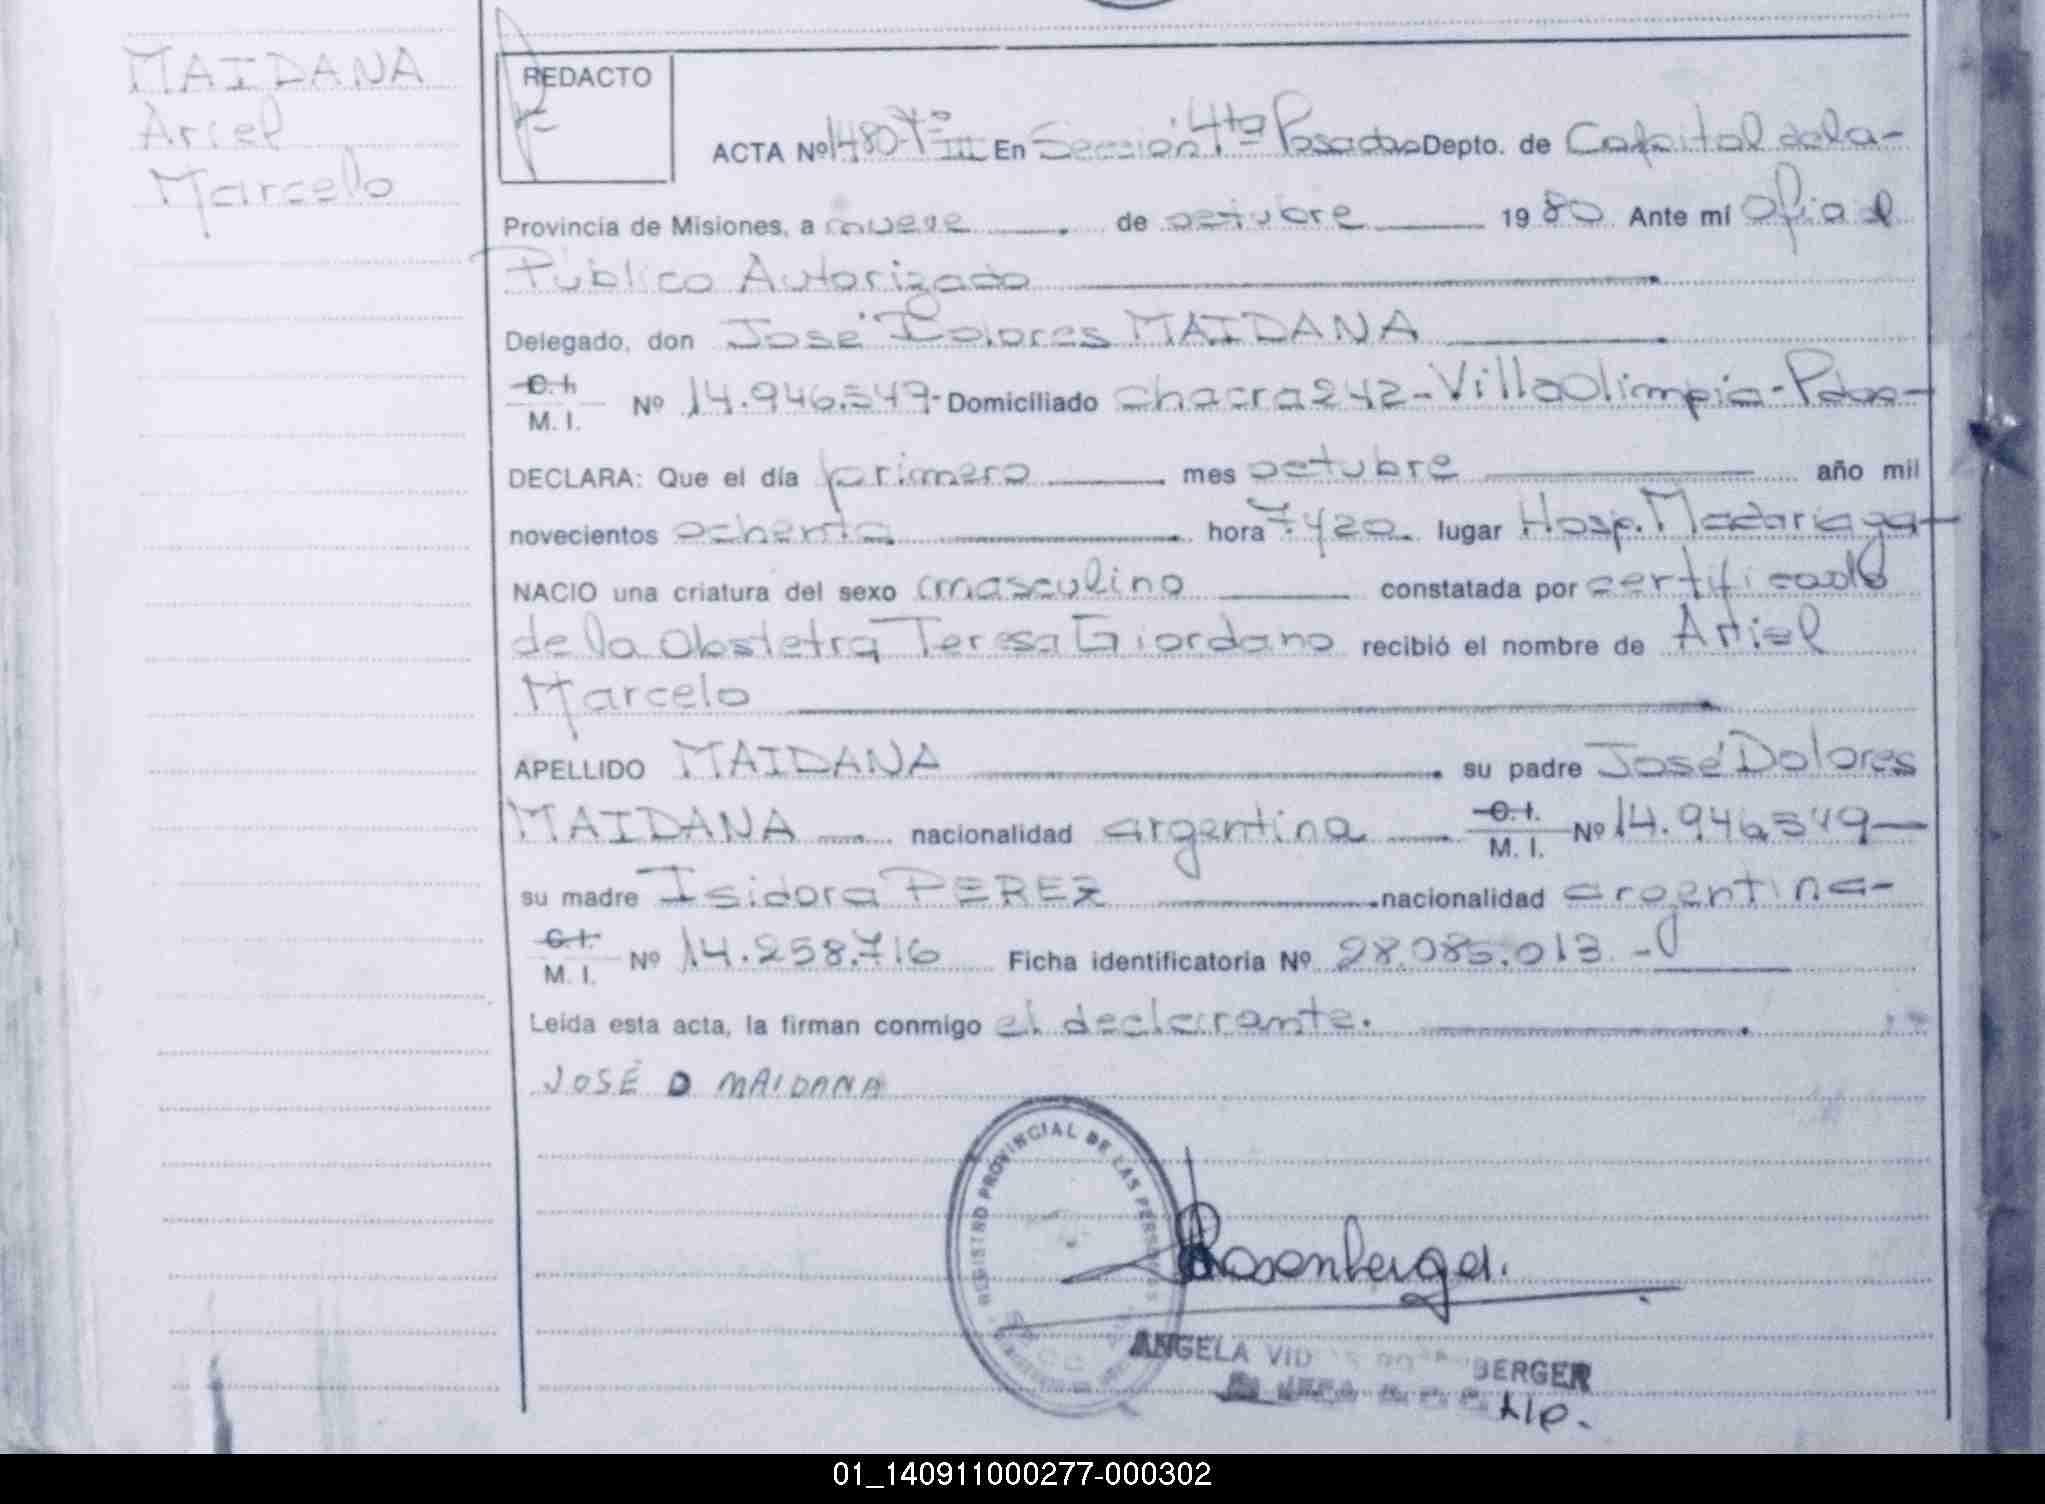 MAIDANA
Ariel
Marcelo
REDACTO
ACTA Nº 1480-Tº III En Sección 4ta Posadas Depto. de Capital de la-
Provincia de Misiones, a nueve de octubre 1980. Ante mí Ofial
Público Autorizado
Delegado, don José Dolores MAIDANA
C. I.
M. I. Nº 14.946.349- Domiciliado chacra 242-Villa Olimpia-Pdas-
DECLARA: Que el día primero mes octubre año mil
novecientos ochenta hora 7y20 lugar Hosp. Madariaga-
NACIO una criatura del sexo masculino constatada por certificado
de la Obstetra Teresa Giordano recibió el nombre de Ariel
Marcelo
APELLIDO MAIDANA su padre José Dolores
MAIDANA nacionalidad argentina C. I.
M. I. Nº 14.946.349-
su madre Isidora PEREZ nacionalidad argentina-
C. I.
M. I. Nº 14.258.716 Ficha identificatoria Nº 28.085.013.-
Leída esta acta, la firman conmigo el declarante.
JOSÉ D MAIDANA
REGISTRO PROVINCIAL DE LAS PERSONAS
Rosenberger.
ANGELA VID BERGER
01_140911000277-000302